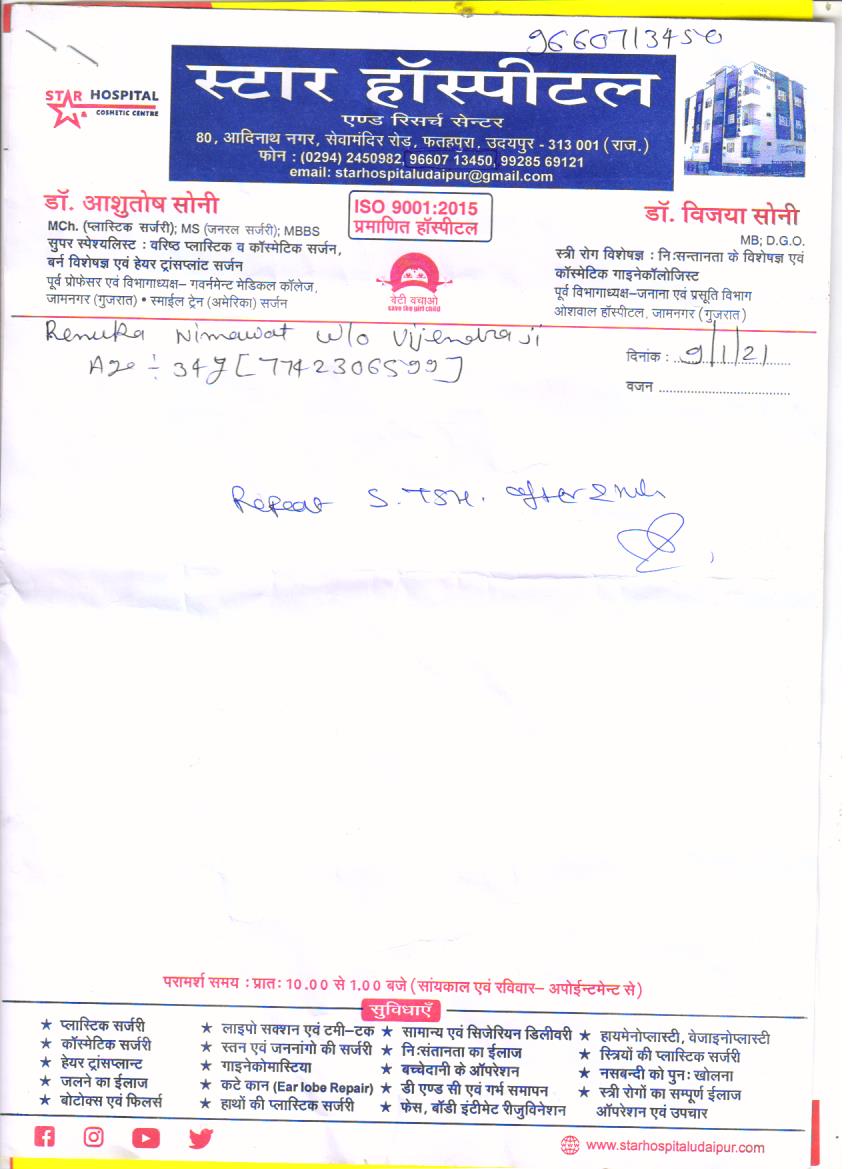 9660713450
STAR HOSPITAL
COSMETIC CENTRE
स्टार हॉस्पीटल
एण्ड रिसर्च सेन्टर
80, आदिनाथ नगर, सेवामंदिर रोड, फतहपुरा, उदयपुर - 313 001 (राज.)
फोन : (0294) 2450982, 96607 13450, 99285 69121
email: starhospitaludaipur@gmail.com
डॉ. आशुतोष सोनी
MCh. (प्लास्टिक सर्जरी); MS (जनरल सर्जरी); MBBS
सुपर स्पेश्यलिस्ट : वरिष्ठ प्लास्टिक व कॉस्मेटिक सर्जन,
बर्न विशेषज्ञ एवं हेयर ट्रांसप्लांट सर्जन
पूर्व प्रोफेसर एवं विभागाध्यक्ष– गवर्नमेन्ट मेडिकल कॉलेज,
जामनगर (गुजरात) • स्माईल ट्रेन (अमेरिका) सर्जन
ISO 9001:2015
प्रमाणित हॉस्पीटल
बेटी बचाओ
save the girl child
डॉ. विजया सोनी
MB; D.G.O.
स्त्री रोग विशेषज्ञ : निःसन्तानता के विशेषज्ञ एवं
कॉस्मेटिक गाइनेकॉलोजिस्ट
पूर्व विभागाध्यक्ष–जनाना एवं प्रसूति विभाग
ओशवाल हॉस्पीटल, जामनगर (गुजरात)
Renuka Nimawat w/o Vijendra ji
Age :- 34y [7742306599]
दिनांक : 9/1/21
वजन
Repeat S. TSH. after 2 mth
परामर्श समय : प्रातः 10.00 से 1.00 बजे (सांयकाल एवं रविवार– अपोईन्टमेन्ट से)
सुविधाएँ
★ प्लास्टिक सर्जरी
★ कॉस्मेटिक सर्जरी
★ हेयर ट्रांसप्लान्ट
★ जलने का ईलाज
★ बोटोक्स एवं फिलर्स
★ लाइपो सक्शन एवं टमी–टक
★ स्तन एवं जननांगो की सर्जरी
★ गाइनेकोमास्टिया
★ कटे कान (Ear lobe Repair)
★ हाथों की प्लास्टिक सर्जरी
★ सामान्य एवं सिजेरियन डिलीवरी
★ निःसंतानता का ईलाज
★ बच्चेदानी के ऑपरेशन
★ डी एण्ड सी एवं गर्भ समापन
★ फेस, बॉडी इंटीमेट रीजुविनेशन
★ हायमेनोप्लास्टी, वेजाइनोप्लास्टी
★ स्त्रियों की प्लास्टिक सर्जरी
★ नसबन्दी को पुनः खोलना
★ स्त्री रोगों का सम्पूर्ण ईलाज
ऑपरेशन एवं उपचार
www.starhospitaludaipur.com